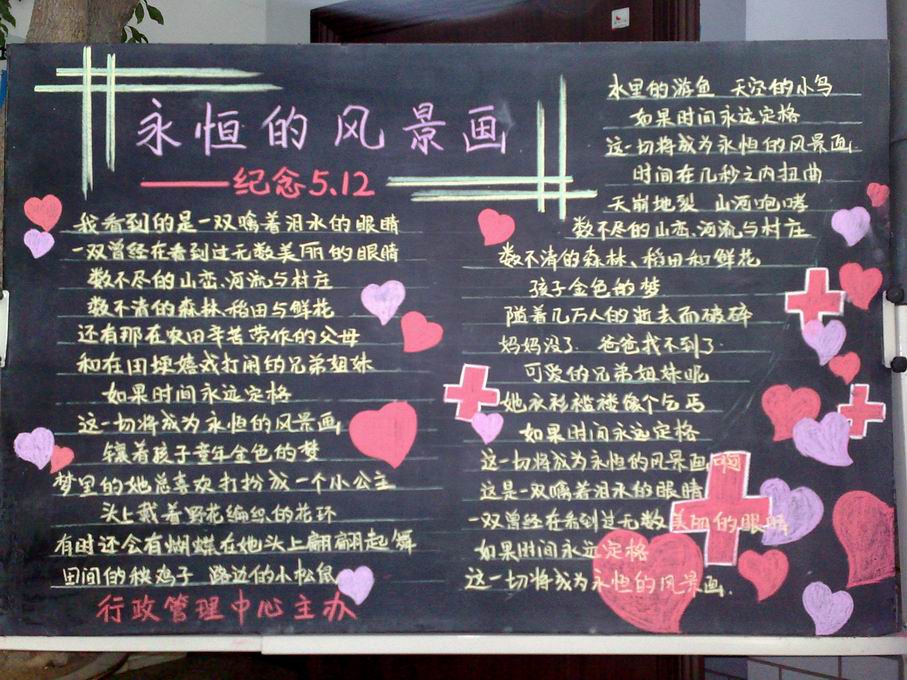 永恒的风景画
——纪念5.12
我看到的是一双噙着泪水的眼睛
一双曾经在看到过无数美丽的眼睛
数不尽的山峦、河流与村庄
数不清的森林、稻田与鲜花
还有那在农田辛苦劳作的父母
和在田埂嬉戏打闹的兄弟姐妹
如果时间永远定格
这一切将成为永恒的风景画
镶着孩子童年金色的梦
梦里的她总喜欢打扮成一个小公主
头上戴着野花编织的花环
有时还会有蝴蝶在她头上翩翩起舞
田间的秧鸡子 路边的小松鼠
行政管理中心主办
水里的游鱼 天空的小鸟
如果时间永远定格
这一切将成为永恒的风景画
时间在几秒之内扭曲
天崩地裂 山河咆哮
数不尽的山峦、河流与村庄
数不清的森林、稻田和鲜花
孩子金色的梦
随着几万人的逝去而破碎
妈妈没了 爸爸找不到了
可爱的兄弟姐妹呢
她衣衫褴褛像个乞丐
如果时间永远定格
这一切将成为永恒的风景画啊
这是一双噙着泪水的眼睛
一双曾经在看到过无数美丽的眼睛
如果时间永远定格
这一切将成为永恒的风景画.